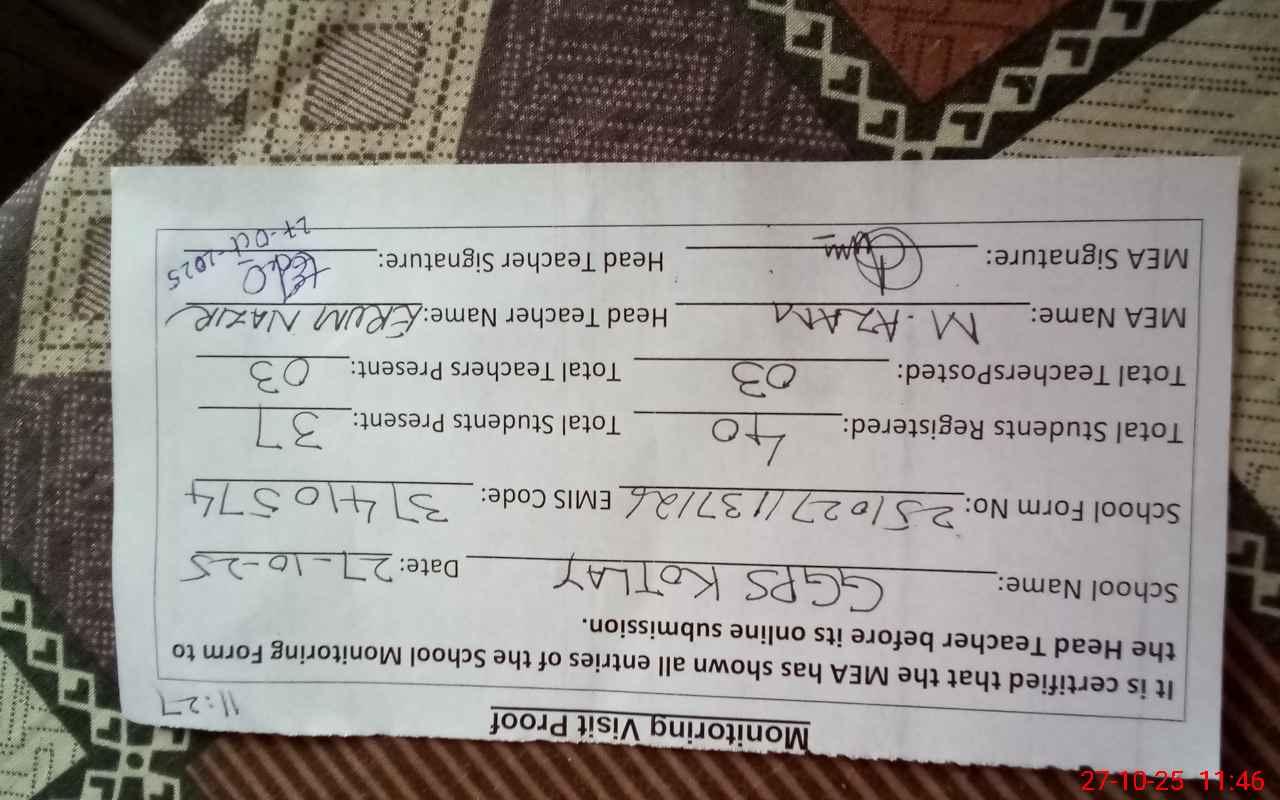 Monitoring Visit Proof
11:27
It is certified that the MEA has shown all entries of the School Monitoring Form to
the Head Teacher before its online submission.
School Name: GGPS KOTLAY Date: 27-10-25
School Form No: 2510271137126 EMIS Code: 37410574
Total Students Registered: 40 Total Students Present: 37
Total TeachersPosted: 03 Total Teachers Present: 03
MEA Name: M. AZAM Head Teacher Name: ERUM NAZIR
MEA Signature: Head Teacher Signature:
27-Oct-2025
27-10-25 11:46